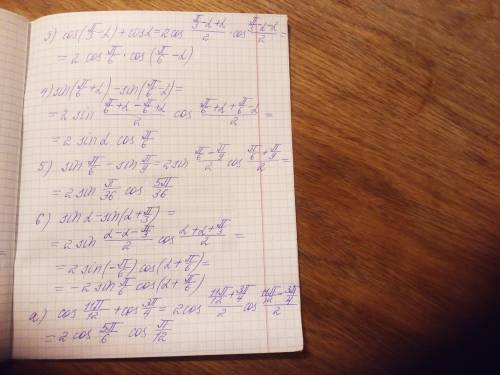 3) cos(π/3-α)+cosα=2cos (π/3-α+α)/2 · cos (π/3-α-α)/2 =
= 2 cos π/6 · cos(π/6-α)
4) sin(π/6+α)-sin(π/6-α)=
= 2 sin (π/6+α-π/6+α)/2 cos (π/6+α+π/6-α)/2 =
= 2 sin α cos π/6
5) sin π/6 - sin π/9 = 2 sin (π/6-π/9)/2 cos (π/6+π/9)/2 =
= 2 sin π/36 cos 5π/36
6) sin α - sin(α+π/3) =
= 2 sin (α-α-π/3)/2 cos (α+α+π/3)/2 =
= 2 sin(-π/6) cos(α+π/6)=
= - 2 sin π/6 cos(α+π/6)
а) cos 11π/12 + cos 3π/4 = 2cos (11π/12+3π/4)/2 cos (11π/12-3π/4)/2
= 2 cos 5π/6 cos π/12